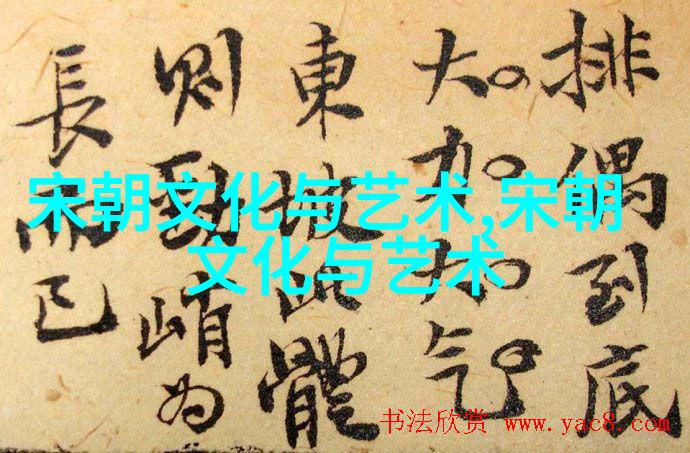 宋朝文化与艺术,宋朝
文化与艺术
排偶到底
大气
東坡此體
則勁峭為
長而已
书法欣赏 www.yac8.com